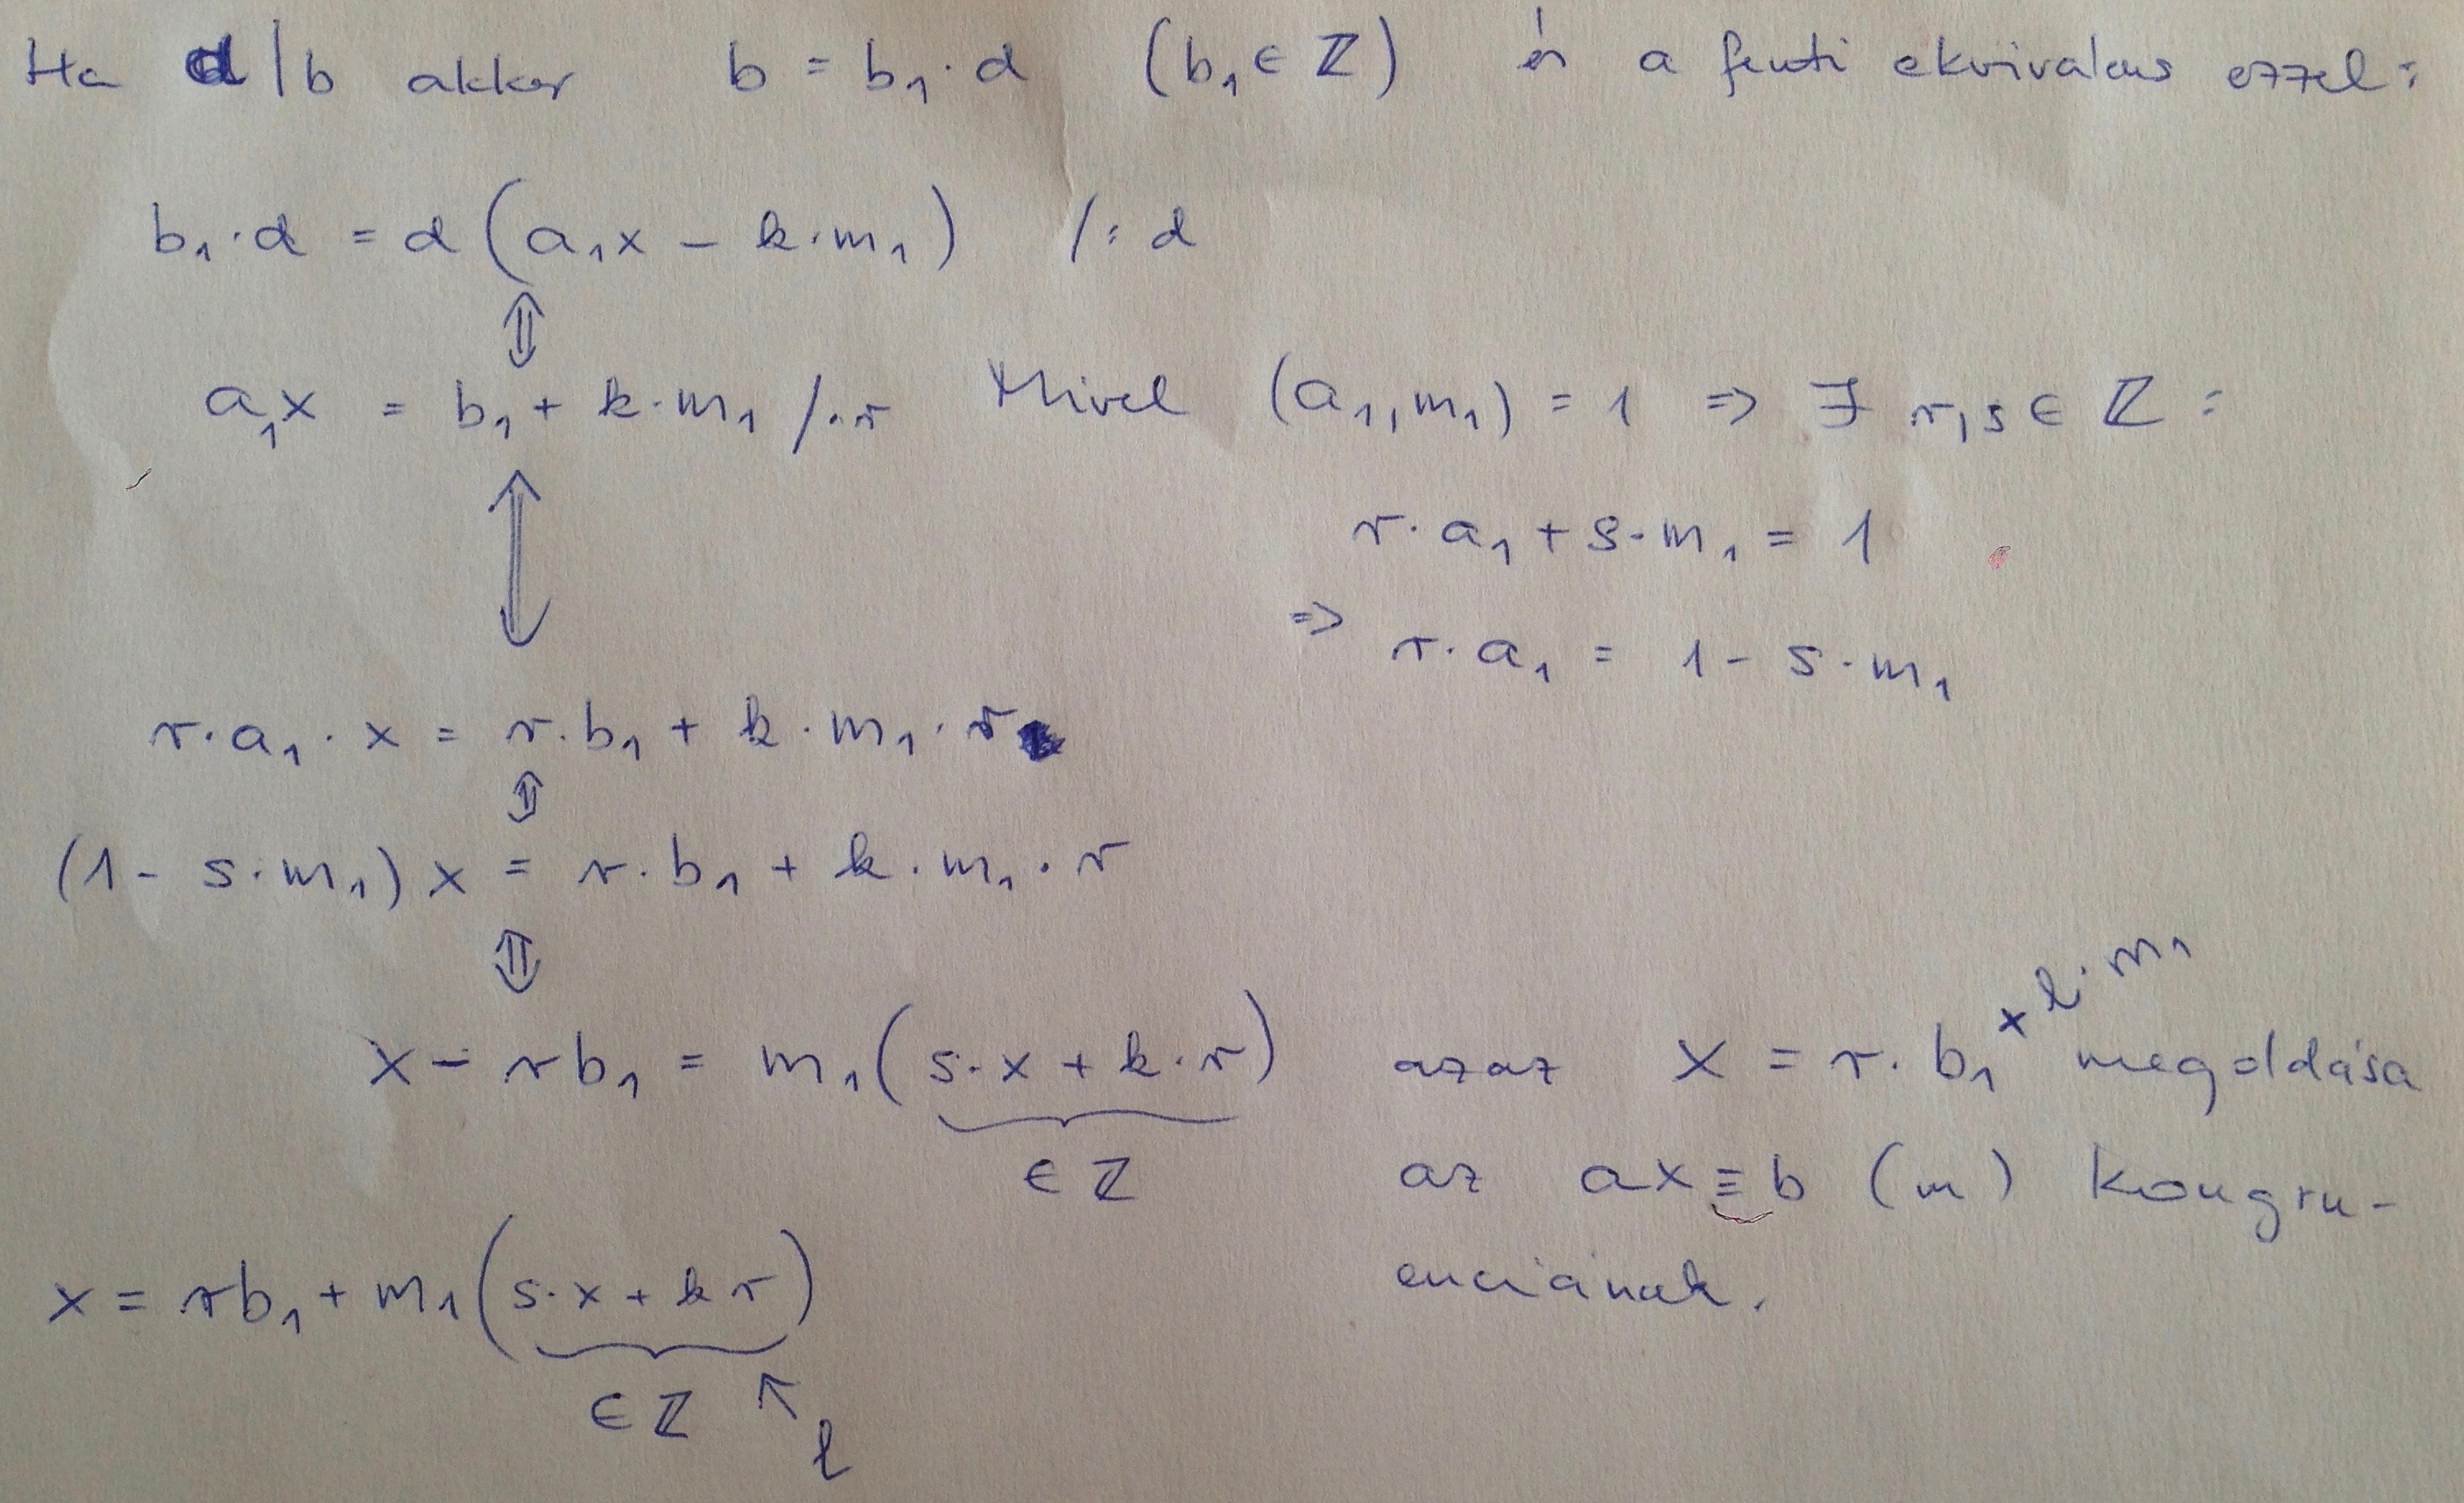 Ha d|b akkor b = b₁·d (b₁ ∈ ℤ) és a fenti ekvivalens ezzel:
b₁·d = d(a₁x − k·m₁) /:d
⇕
a₁x = b₁ + k·m₁ /·r Mivel (a₁,m₁) = 1 ⇒ ∃ r,s ∈ ℤ:
⇕
r·a₁ + s·m₁ = 1
⇒ r·a₁ = 1 − s·m₁
r·a₁·x = r·b₁ + k·m₁·r
⇕
(1 − s·m₁)x = r·b₁ + k·m₁·r
⇕
x − rb₁ = m₁(s·x + k·r) azaz x = r·b₁ + l·m₁ megoldása
∈ ℤ
az ax ≡ b (m) kongru-
enciának.
x = rb₁ + m₁(s·x + kr)
∈ ℤ ↖ l